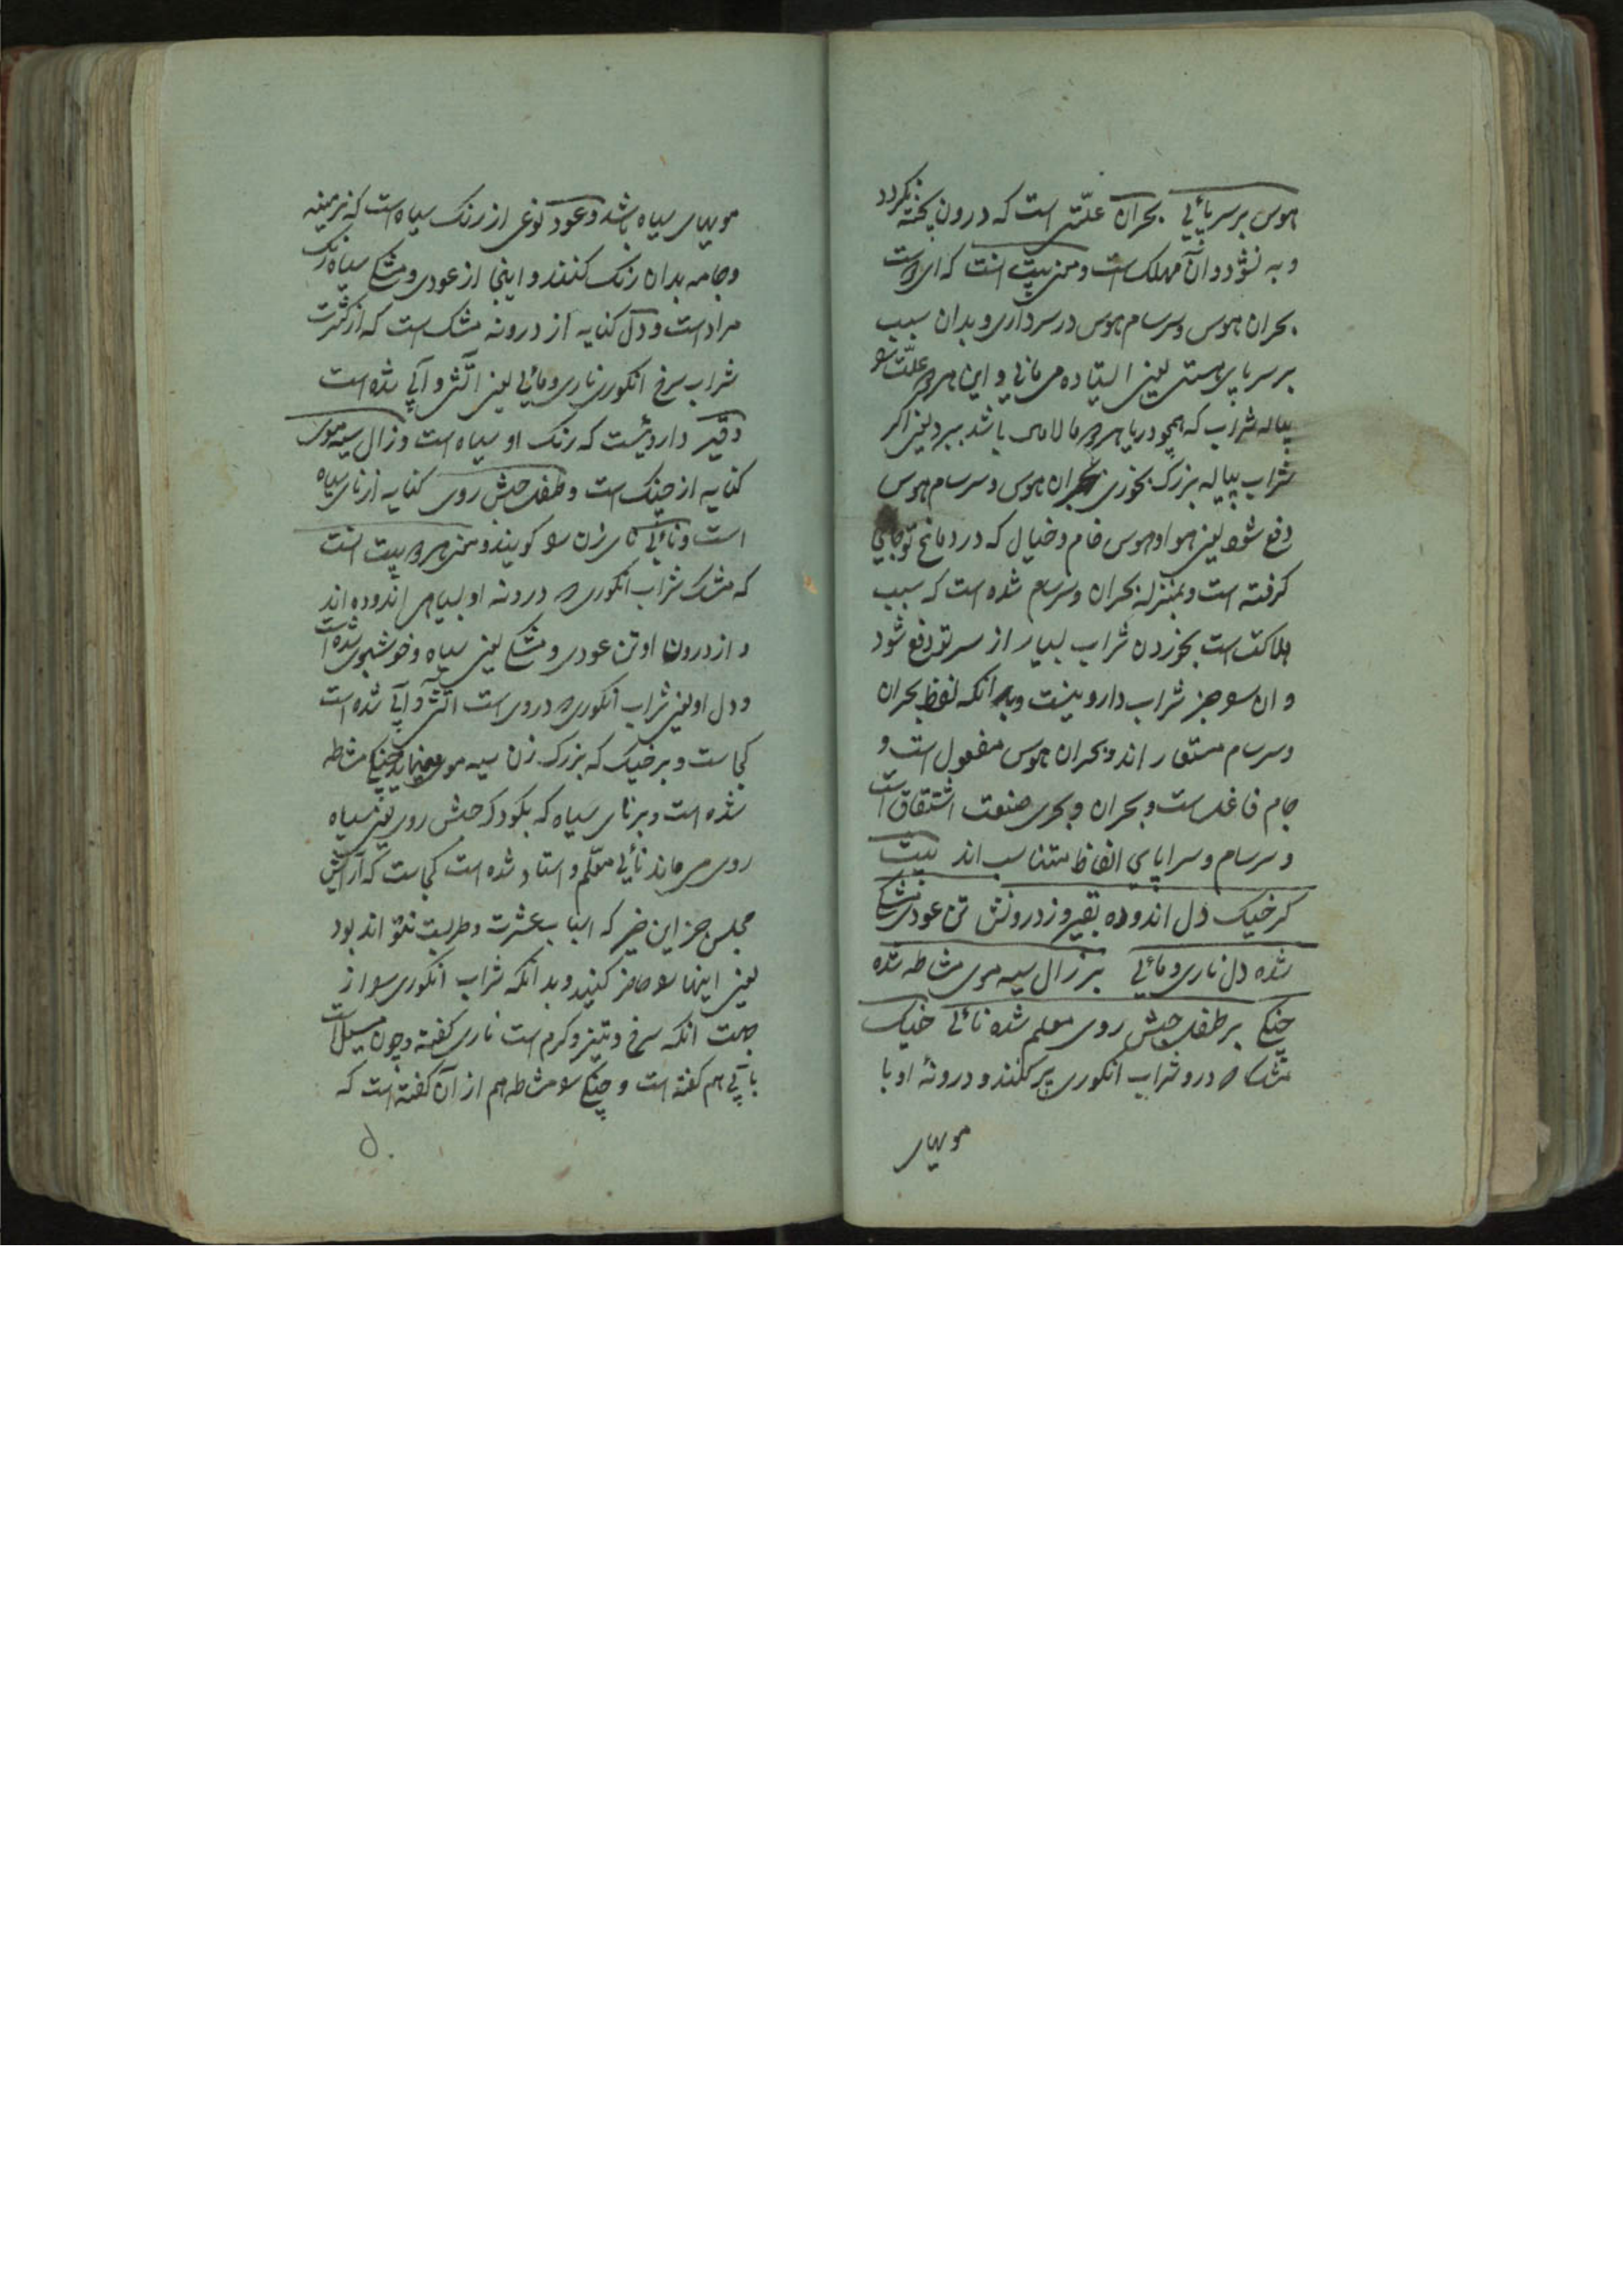 هوس بر سر پائی بحران علّتی است که درون پخته نکردد
و به نشود و آن مهلک است و معنی بیت انست که ای دوست
بحران هوس و سرسام هوس در سر داری و بدان سبب
بر سر پای هستی یعنی ایستاده می مانی و این هر دو علّت سو
پیاله شراب که همچو دریا هر دم مالامال باشد ببرد یعنی اکر
شراب پیاله بزرک بخوری بحران هوس و سرسام هوس
دفع شود یعنی هوا و هوس خام و خیال که در دماغ تو جای
کرفته است و بمنزله بحران و سرسام شده است که سبب
هلاکت است بخوردن شراب بسیار از سر تو دفع شود
و ان سو جز شراب دارو نیست و بدانکه لفظ بحران
و سرسام مستعار اند و بحران هوس مفعول است و
جام فاعل است و بحران و بحری صنعت اشتقاق است
و سرسام و سراپای الفاظ متناسب اند بیت
کر خیک دل اندوده بقیر وز درونش تن عودی و مشکی
شده دل ناری و مائی بر زال سیه موی مشاطه شده
چنکی بر طفل حبش روی معلم شده نائی خیک
مشک که درو شراب انکوری پر کنند و درونهٔ او با
مومیای
مومیای سیاه باشد و عود نوعی از رنک سیاه است که نرمینه
و جامه بدان رنک کنند و اینجا از عودی و مشکی سیاه رنک
مراد است و دل کنایه از درونه مشک است که از کثرت
شراب سرخ انکوری ناری و مائی یعنی اتشی و آبی شده است
و قیر داروئیست که رنک او سیاه است و زال سیه موی
کنایه از چنک است و طفل حبش روی کنایه از نای سیاه
است و نائی نای زن سو کویند و معنی هر دو بیت انست
که مشک شراب انکوری که درونه او بسیاهی اندوده اند
و از درون او تن عودی و مشکی یعنی سیاه و خوشبوی شده است
و دل او یعنی شراب انکوری که در وی است اتشی و آبی شده است
کجاست و بر خیک که بزرک زن سیه موی میماند چنکی مشاطه
شده است و بر نای سیاه که بکودک حبش روی یعنی سیاه
روی می ماند نائی معلّم و استاد شده است کجاست که آرایش
مجلس جز این خبر که اسباب عشرت و طربست نتواند بود
یعنی اینها سو حاضر کنید و بدانکه شراب انکوری سو از
جهت انکه سرخ و تیز و کرم است ناری کفته و چون سیل است
بآبی هم کفته است و چنکی سو مشاطه هم از آن کفته است که